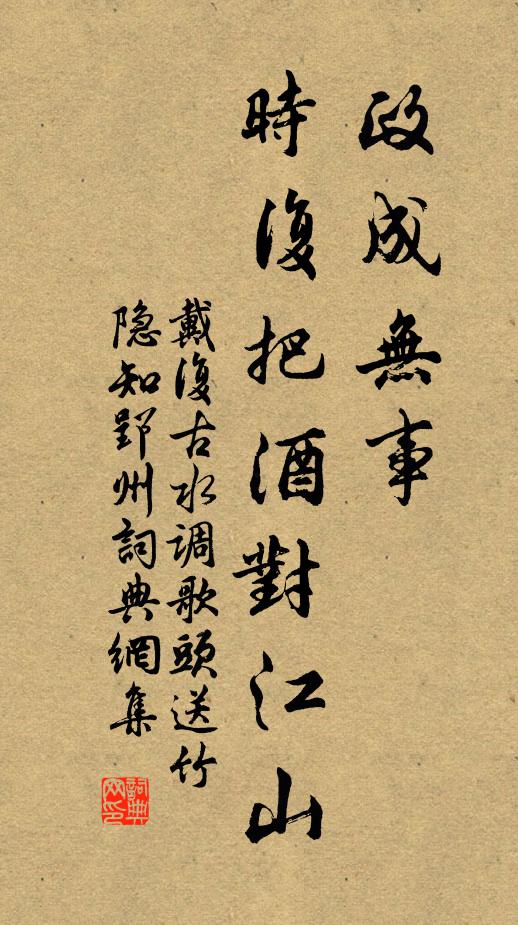 政成無事
時復把酒對江山
戴復古水调歌頭送竹
隐知郢州詞典網集
詞典
网印